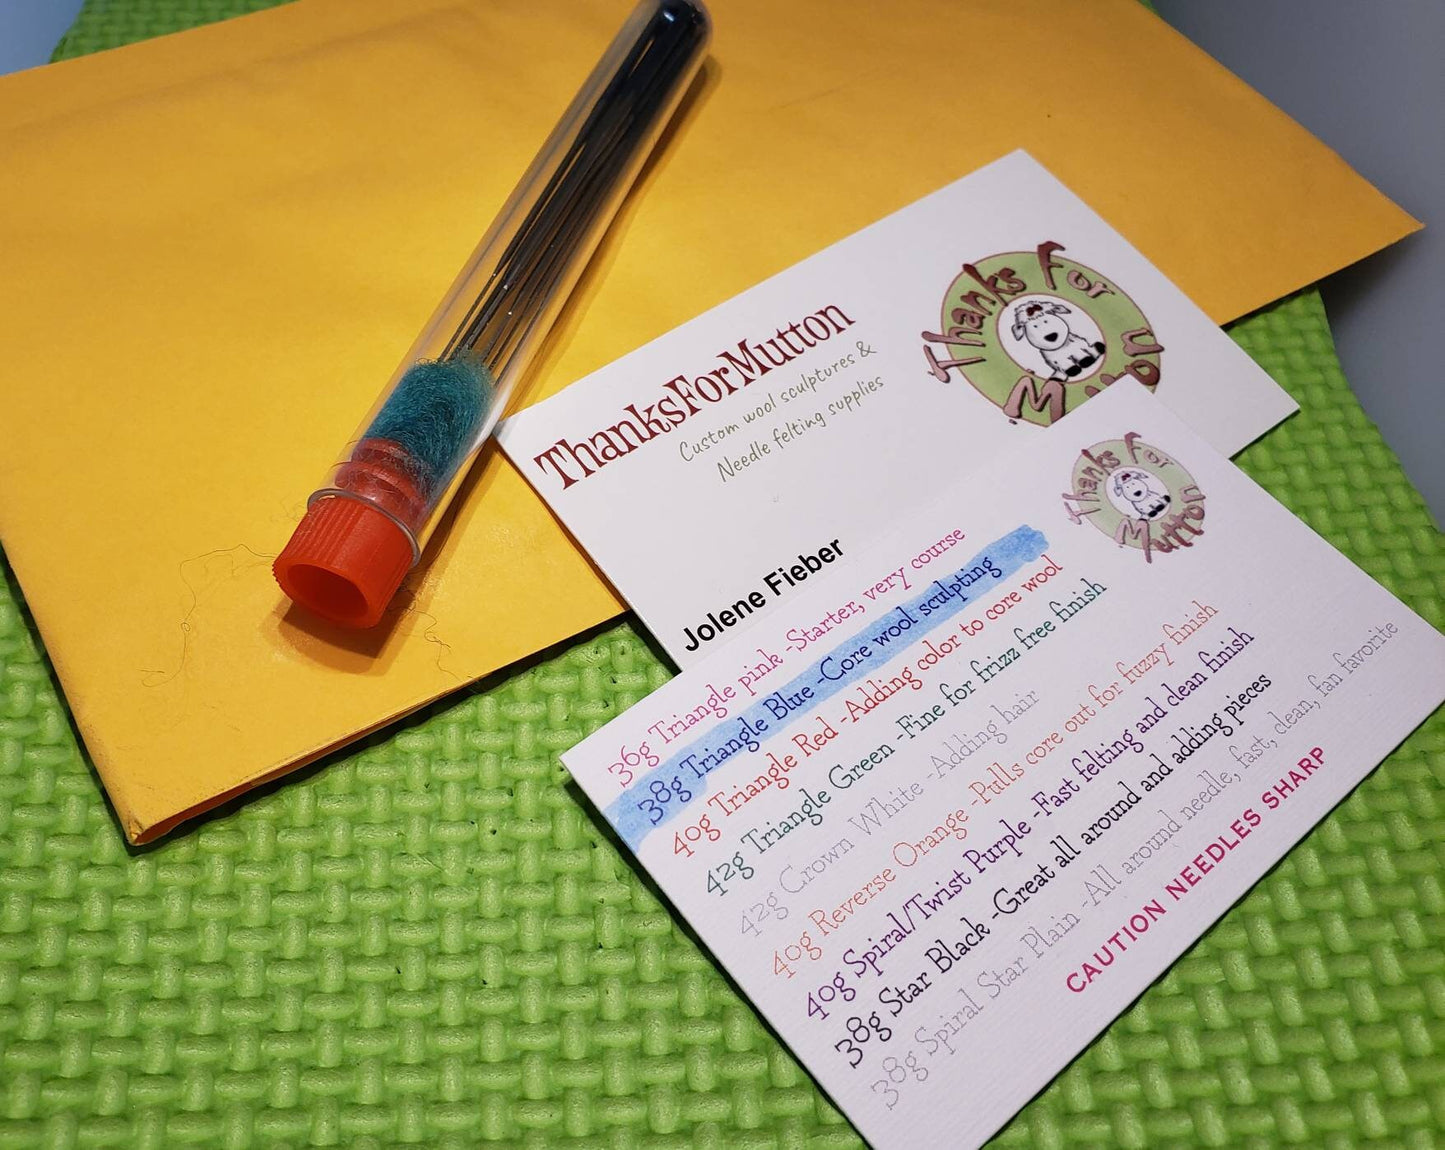 ThanksForMutton
Custom wool sculptures &
Needle felting supplies
Thanks For
Mutton
Jolene Fieber
Thanks For
Mutton
36g Triangle pink -Starter, very course
38g Triangle Blue -Core wool sculpting
40g Triangle Red -Adding color to core wool
42g Triangle Green -Fine for frizz free finish
42g Crown White -Adding hair
40g Reverse Orange -Pulls core out for fuzzy finish
40g Spiral/Twist Purple -Fast felting and clean finish
38g Star Black -Great all around and adding pieces
38g Spiral Star Plain -All around needle, fast, clean, fan favorite
CAUTION NEEDLES SHARP